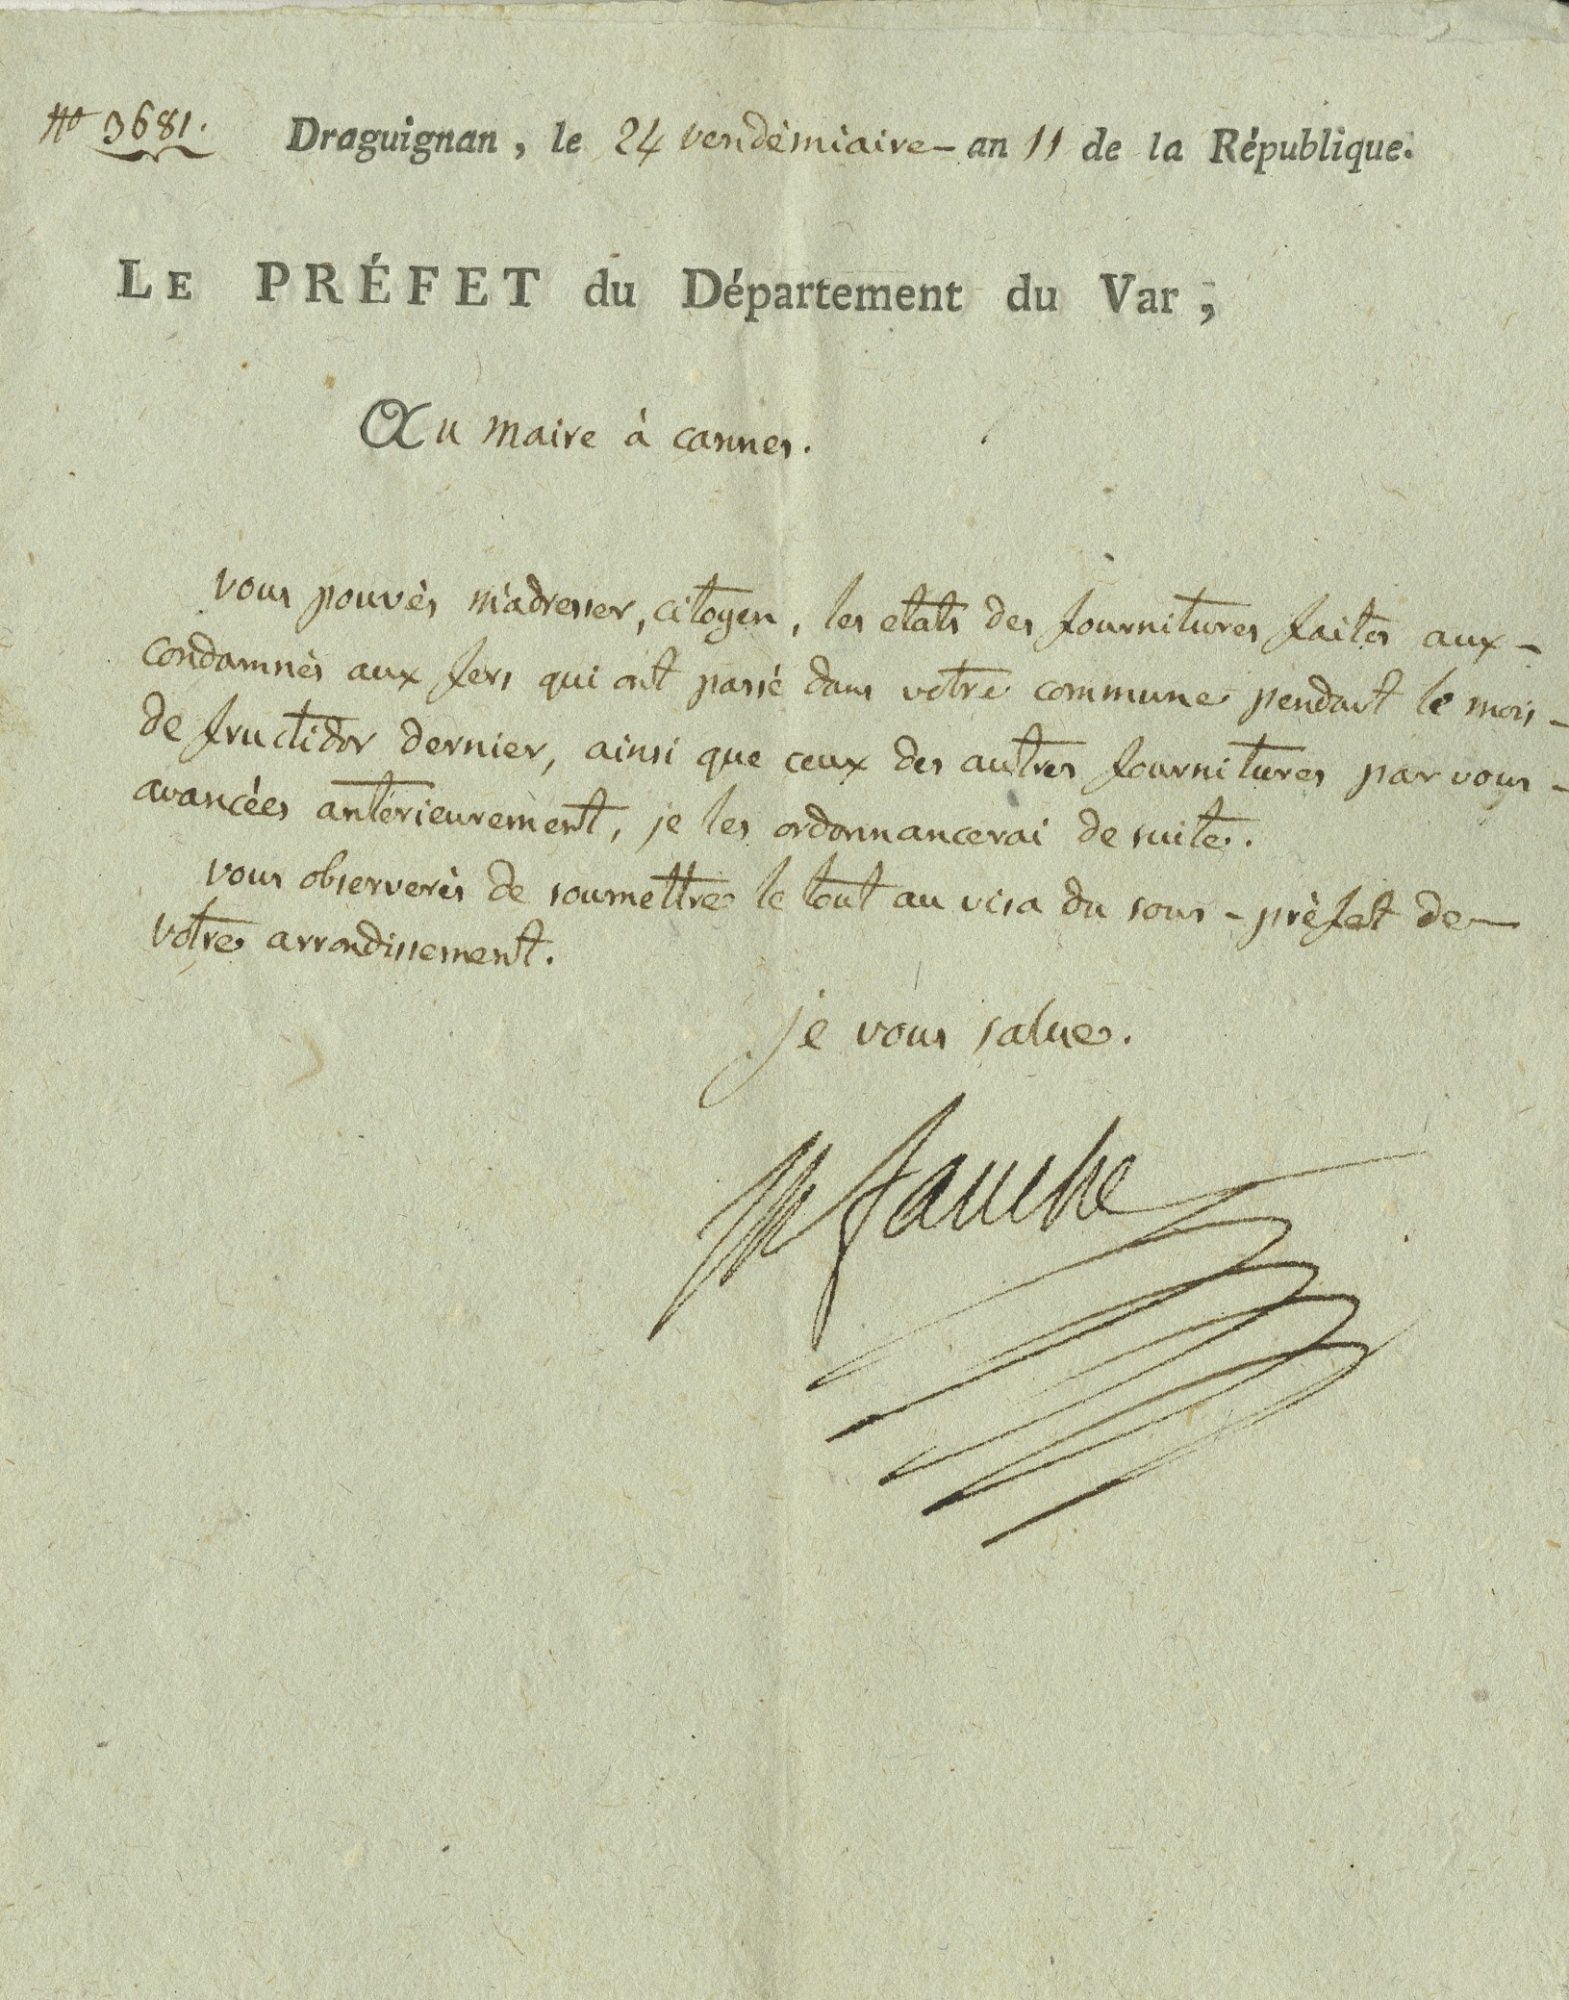 No 3681. Draguignan, le 24 vendémiaire - an 11 de la République.
LE PRÉFET du Département du Var,
Au maire à cannes.
vous pouvès m'adresser, citoyen, les etats des fournitures faites aux -
condamnés aux fers qui ont passé dans votre commune pendant le mois -
de fructidor dernier, ainsi que ceux des autres fournitures par vous -
avancées antérieurement, je les ordonnancerai de suite.
vous observerès de soumettre le tout au visa du sous - préfet de -
votre arrondissement.
je vous salue.
fauche